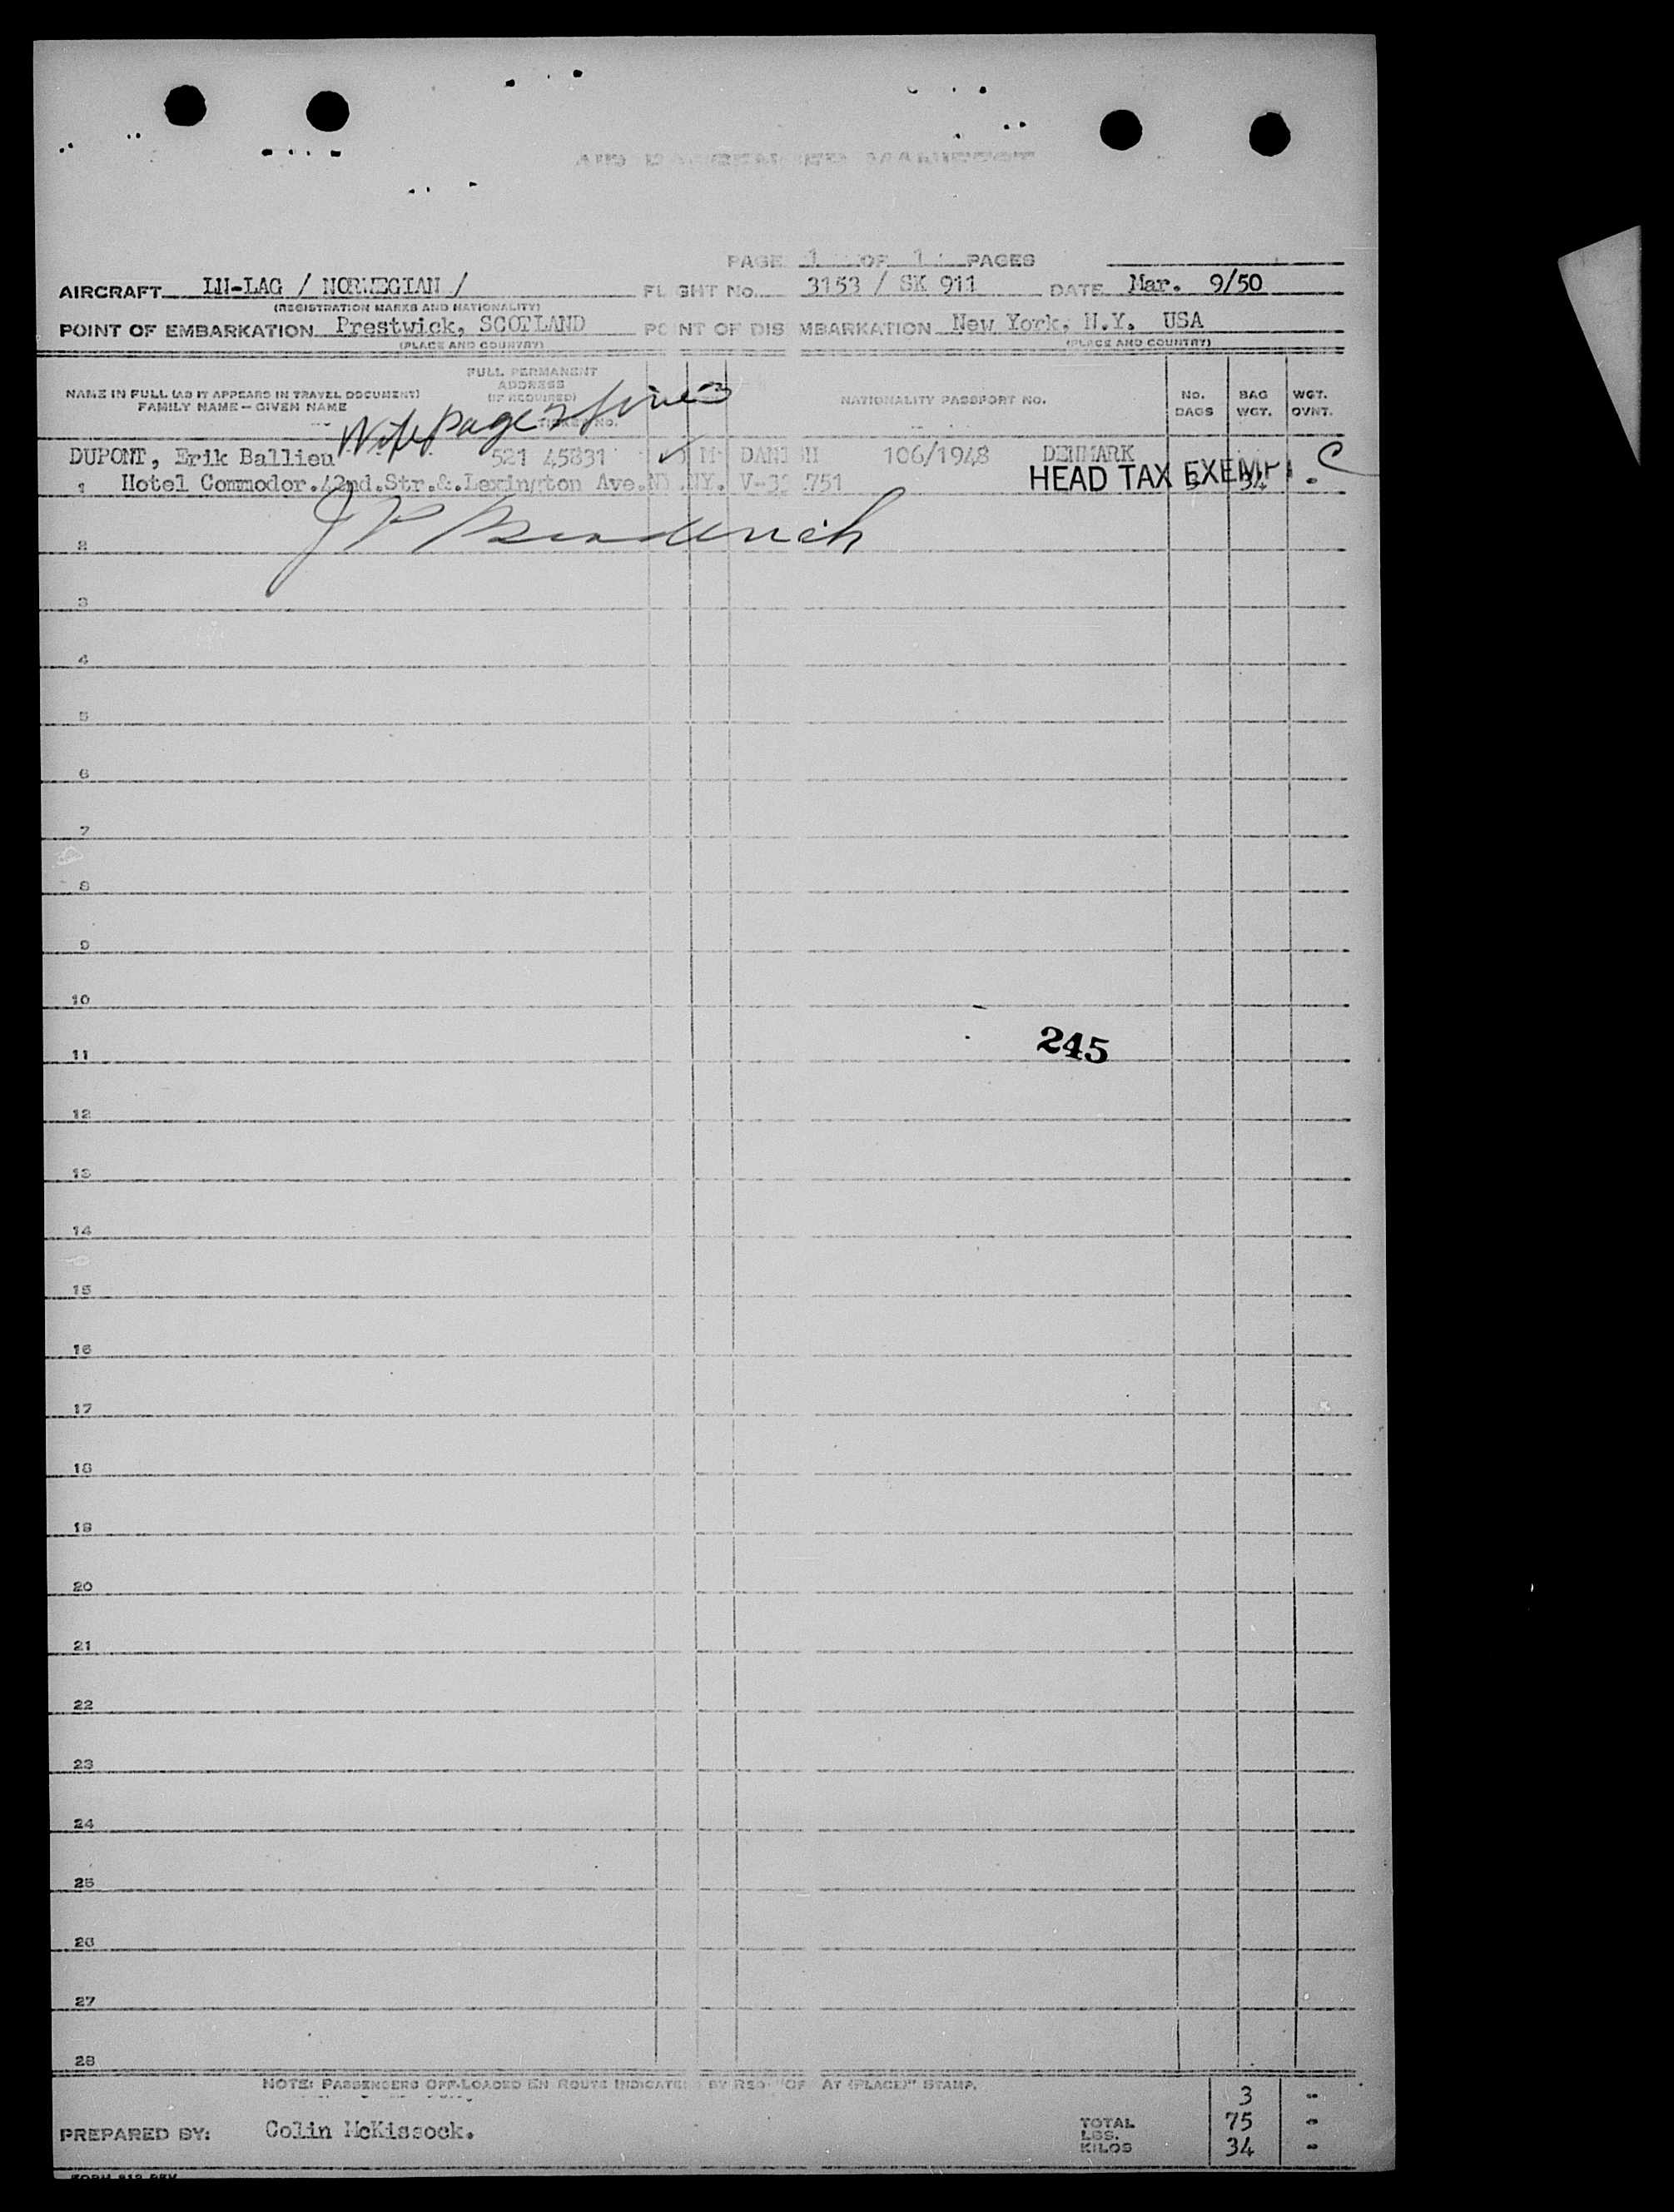 AIR PASSENGER MANIFEST
PAGE 1 OF 1 PAGES
AIRCRAFT LN-LAG / NORWEGIAN / FLIGHT No. 3153 / SK 911 DATE Mar. 9/50
(REGISTRATION MARKS AND NATIONALITY)
POINT OF EMBARKATION Prestwick, SCOTLAND POINT OF DISEMBARKATION New York, N.Y. USA
(PLACE AND COUNTRY) (PLACE AND COUNTRY)
NAME IN FULL (AS IT APPEARS IN TRAVEL DOCUMENT)
FAMILY NAME - GIVEN NAME
FULL PERMANENT
ADDRESS
(IF REQUIRED)
TICKET No.
NATIONALITY PASSPORT NO.
No.
BAGS
BAG
WGT.
WGT.
OVNT.
Wife page 2 line
DUPONT, Erik Ballieu 521 45831 M DANISH 106/1948 DENMARK C
1 Hotel Commodor.42nd.Str.&.Lexington Ave.NY.NY. V-32 751 HEAD TAX EXEMPT 34
2
3
4
5
6
7
8
9
10
245
11
12
13
14
15
16
17
18
19
20
21
22
23
24
25
26
27
28
NOTE: PASSENGERS OFF-LOADED EN ROUTE INDICATED BY RED "OFF AT (PLACE)" STAMP.
3 -
PREPARED BY: Colin McKissock. TOTAL LBS. 75 -
KILOS 34 -